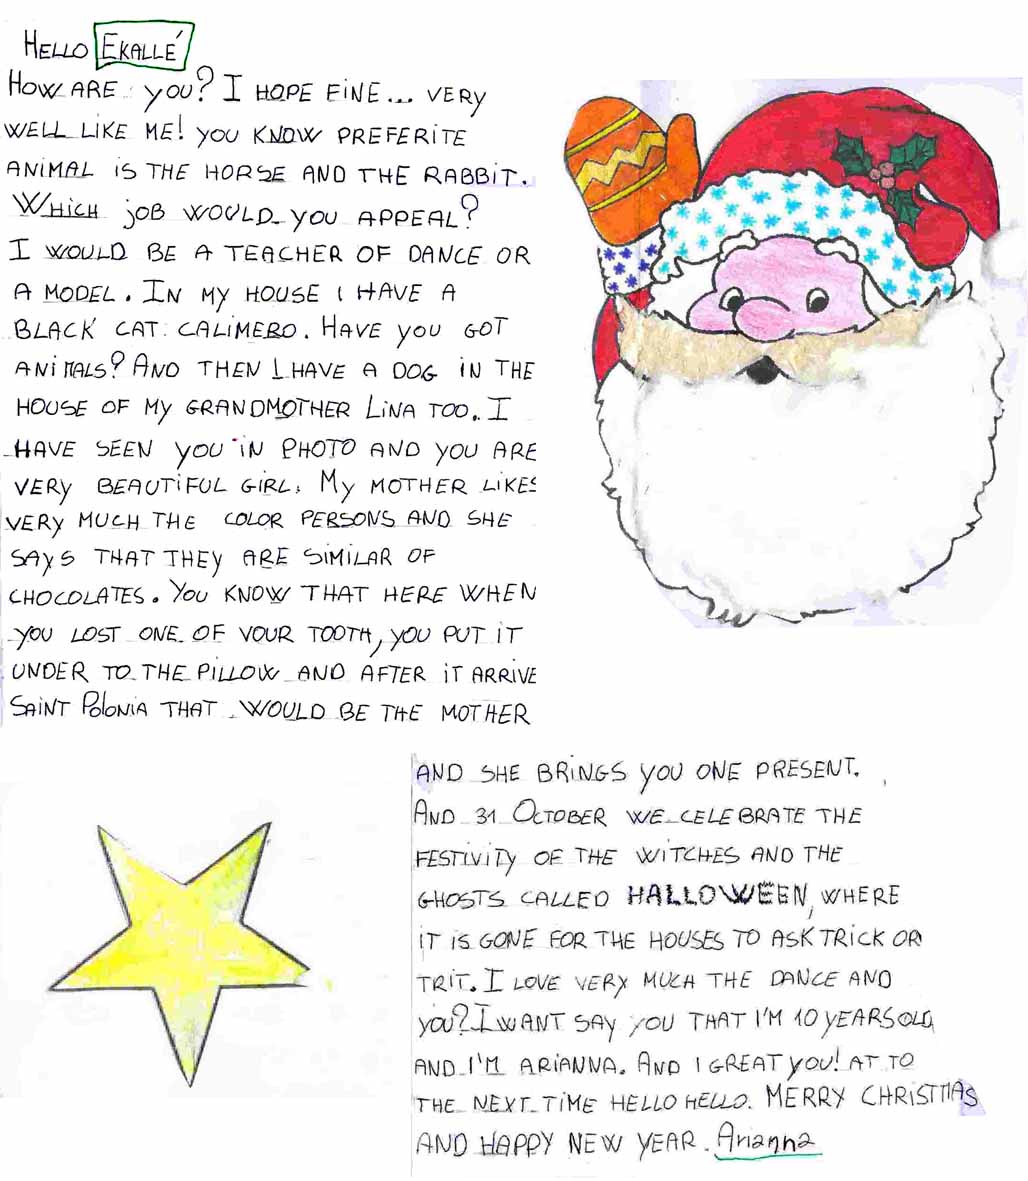 HELLO EKALLÉ
HOW ARE YOU? I HOPE FINE... VERY
WELL LIKE ME! YOU KNOW PREFERITE
ANIMAL IS THE HORSE AND THE RABBIT.
WHICH JOB WOULD YOU APPEAL?
I WOULD BE A TEACHER OF DANCE OR
A MODEL. IN MY HOUSE I HAVE A
BLACK CAT: CALIMERO. HAVE YOU GOT
ANIMALS? AND THEN I HAVE A DOG IN THE
HOUSE OF MY GRANDMOTHER LINA TOO. I
HAVE SEEN YOU IN PHOTO AND YOU ARE
VERY BEAUTIFUL GIRL. MY MOTHER LIKES
VERY MUCH THE COLOR PERSONS AND SHE
SAYS THAT THEY ARE SIMILAR OF
CHOCOLATES. YOU KNOW THAT HERE WHEN
YOU LOST ONE OF YOUR TOOTH, YOU PUT IT
UNDER TO THE PILLOW AND AFTER IT ARRIVE
SAINT POLONIA THAT WOULD BE THE MOTHER
AND SHE BRINGS YOU ONE PRESENT.
AND 31 OCTOBER WE CELEBRATE THE
FESTIVITY OF THE WITCHES AND THE
GHOSTS CALLED HALLOWEEN, WHERE
IT IS GONE FOR THE HOUSES TO ASK TRICK OR
TRIT. I LOVE VERY MUCH THE DANCE AND
YOU? I WANT SAY YOU THAT I'M 10 YEARS OLD,
AND I'M ARIANNA. AND I GREAT YOU! AT TO
THE NEXT TIME HELLO HELLO. MERRY CHRISTMAS
AND HAPPY NEW YEAR. Arianna